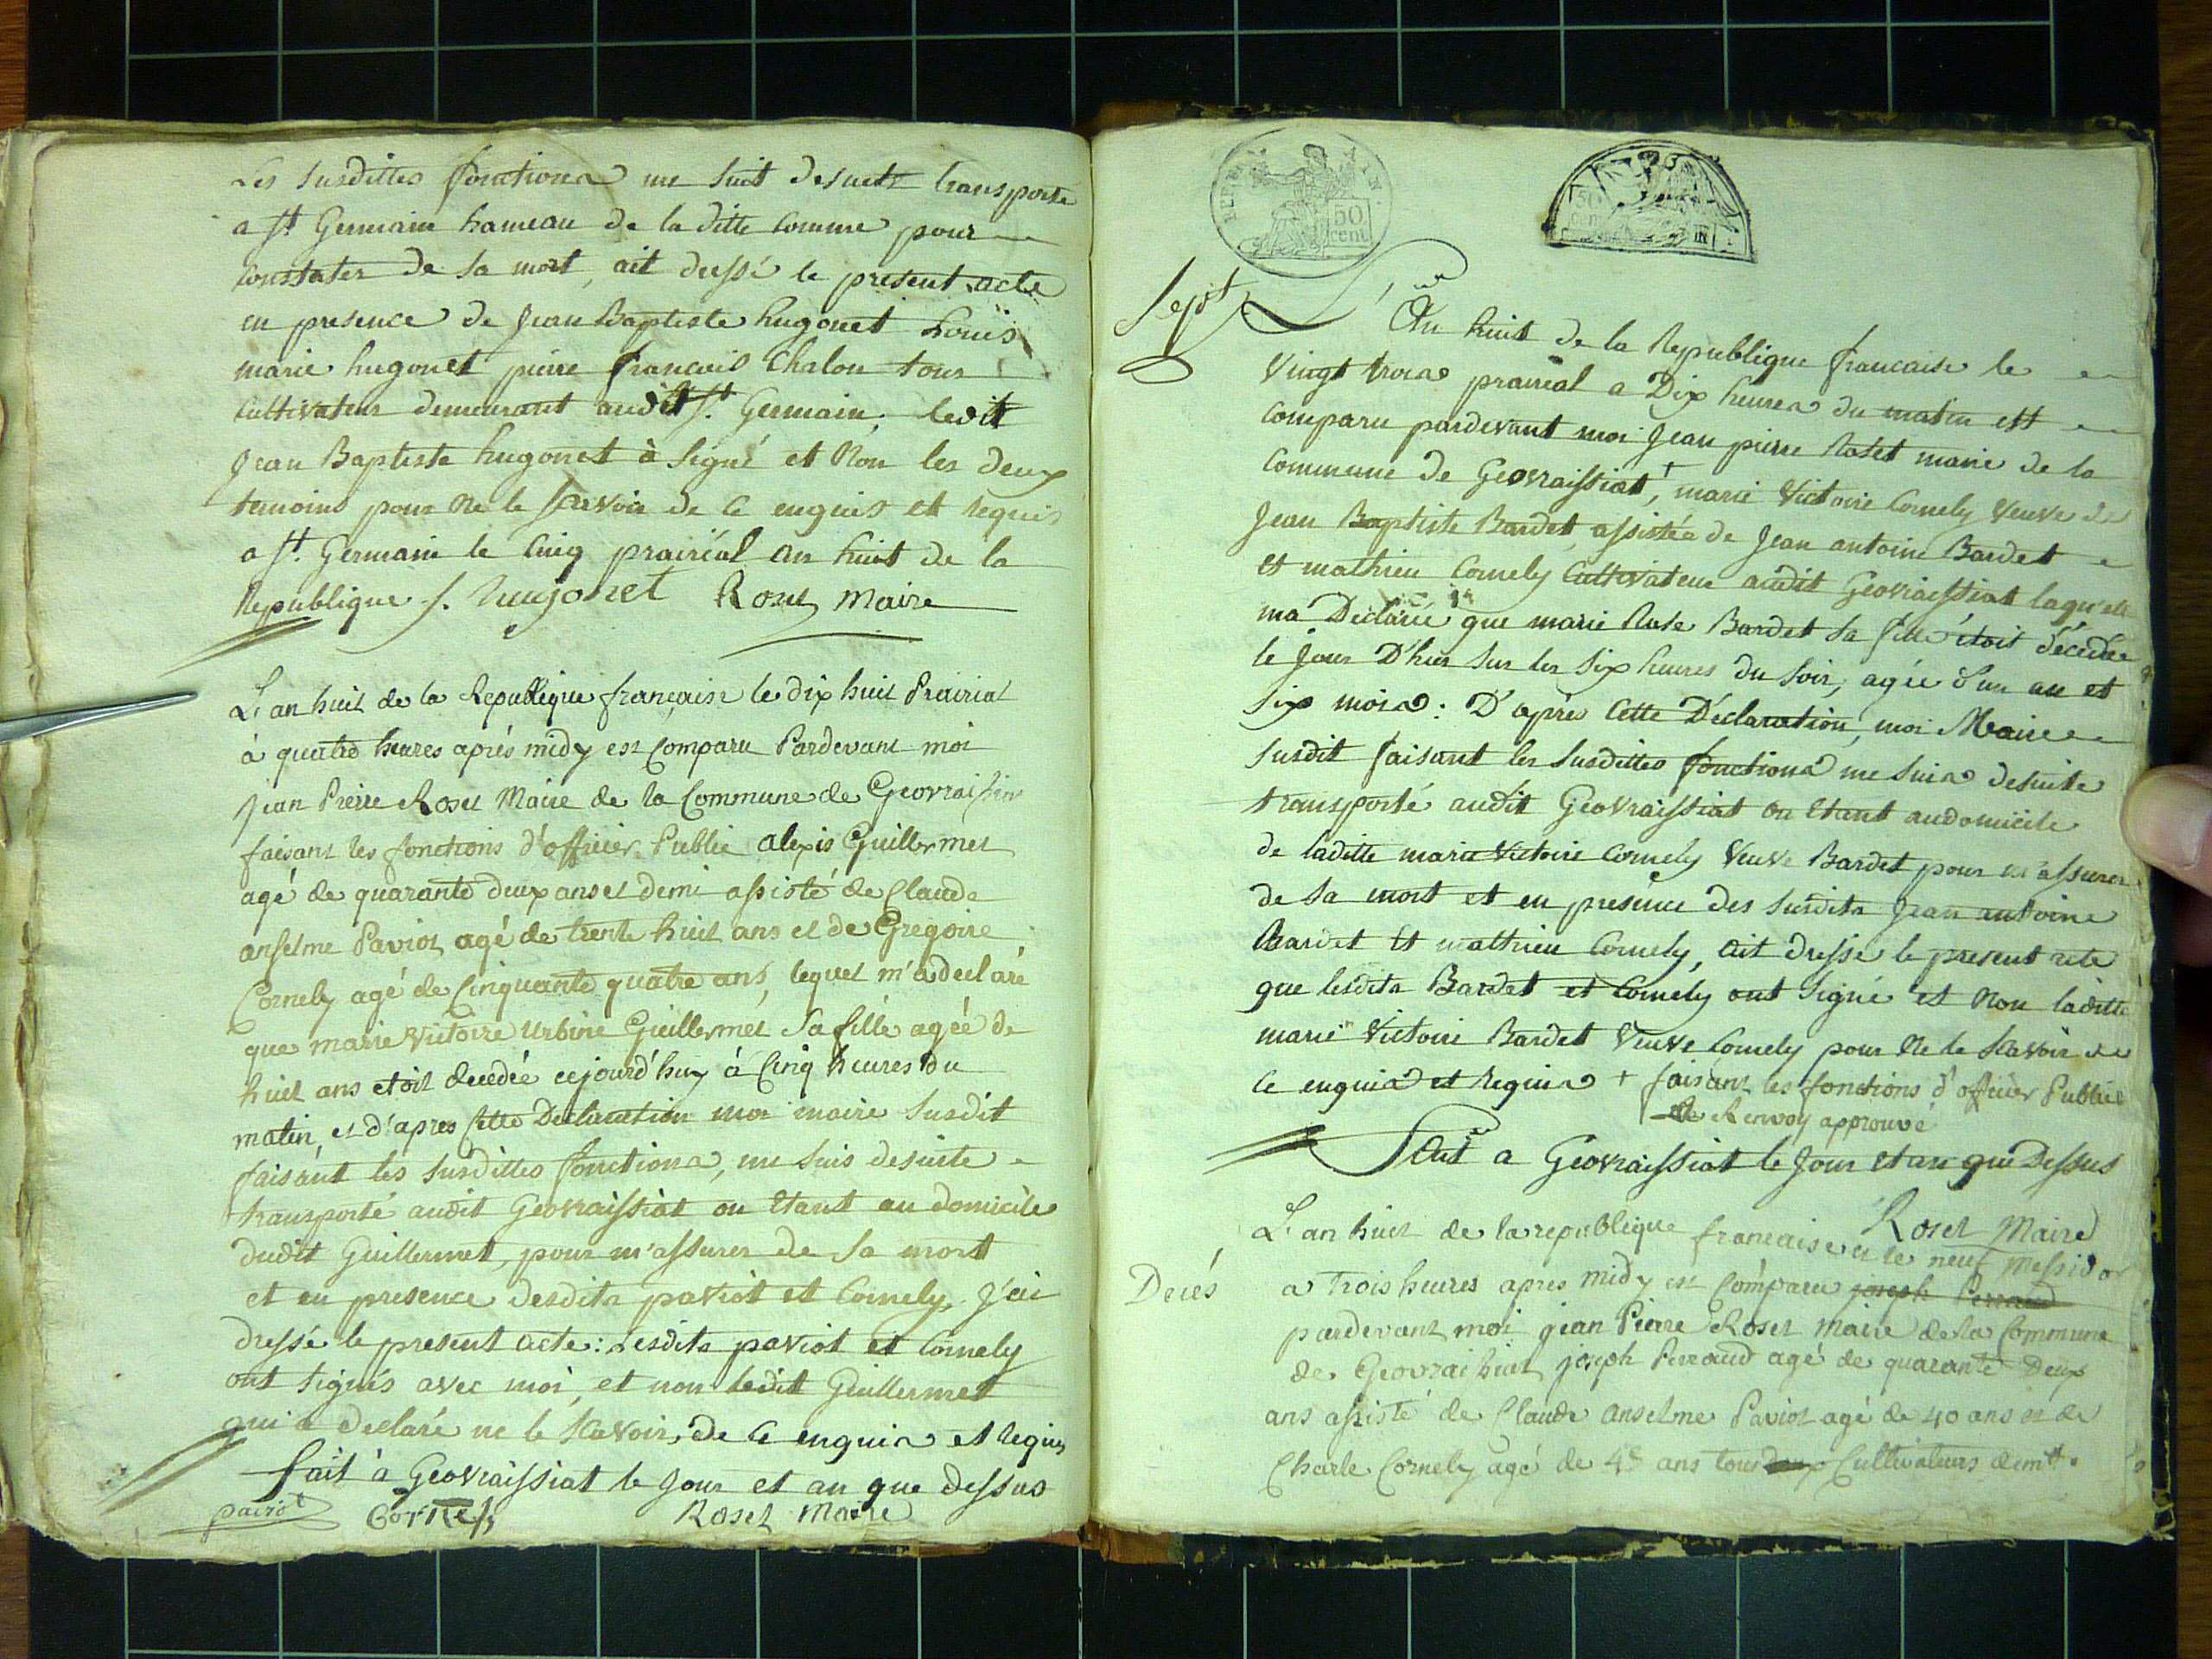 Les susdittes fonctions me suit desuite transporté
a St Germain hameau de la ditte comme pour
constater de sa mort, ait dressé le present acte
en presence de Jean Baptiste hugonet Louis
marie hugonet pierre francois Chalon tous
Cultivateur demeurant audit St Germain, ledit
Jean Baptiste hugonet à Signé et Non les deux
temoins pour Ne le scavoir de ce enquis et requis
a St. Germain le Cinq prairéal an huit de la
Republique J. hugonet Roset maire
L'an huit de la Republique française le dix huit Prairial
à quatre heures aprés midy est Comparu Pardevant moi
Jean Pierre Roset Maire de la Commune de Geovraissia
faisant les fonctions d'officier Public alexis Guillermet
agé de quarante deux ans et demi assisté de Claude
anselme Paviot agé de trente huit ans et de Gregoire
Cornely agé de Cinquante quatre ans, lequel m'a declaré
que marie Victoire Urbine Guillermet Sa fille agée de
huit ans etoit decedée cejourd'huy à Cinq heures du
matin, et d'apres Cette Declaration moi maire Susdit
faisant les Susdittes fonctions, me suis desuite
transporté audit Geovraissiat ou etant au domicile
dudit Guillermet, pour m'assurer de Sa mort
et en presence desdits paviot et Cornely, J'ai
dressé le present acte: Lesdits paviot et Cornely
ont signés avec moi, et non ledit Guillermet
qui a declaré ne le scavoir, de ce enquis et requis
fait à Geovraissiat le Jour et an que dessus
paviot Cornely Roset Maire
50 cent
50 cent
Sept
L'An huit de la Republique francaise le
Vingt trois prairéal a Dix heures du matin est
comparu pardevant moi Jean pierre Roset maire de la
commune de Geovraissiat +, marie Victoire Cornely Veuve de
Jean Baptiste Bardet, assistée de Jean antoine Bardet
et mathieu Cornely Cultivateur audit Geovraissiat laquelle
ma Déclarée que marie Rose Bardet sa fille étoit décédée
le Jour D'hier sur les six heures du Soir, agée d'un an et
six mois: D'après Cette Déclaration, moi Maire
Susdit faisant les Susdittes fonctions me suis desuite
transporté audit Geovraissiat ou etant audomicile
de laditte marie Victoire Cornely Veuve Bardet pour m'assurer
de Sa mort et en presence des susdits Jean antoine
Bardet et mathieu Cornely, ait dressé le present acte
que lesdits Bardet et Cornely ont Signé et Non laditte
marie Victoire Bardet Veuve Cornely pour Ne le scavoir de
ce enquis et requis + faisant les fonctions d'officier Public
Renvoy approuvé
Fait a Geovraissiat le Jour et an que Dessus
Roset Maire
L'an huit de la republique francaise et le neuf Messidor
Decés
a trois heures apres midy est Comparu joseph Perraud
pardevant moi jean Pierre Roset maire de la Commune
de Geovraissiat joseph Perraud agé de quarante Deux
ans assisté de Claude anselme Paviot agé de 40 ans et de
Charle Cornely agé de 48 ans tous deux Cultivateurs demt.